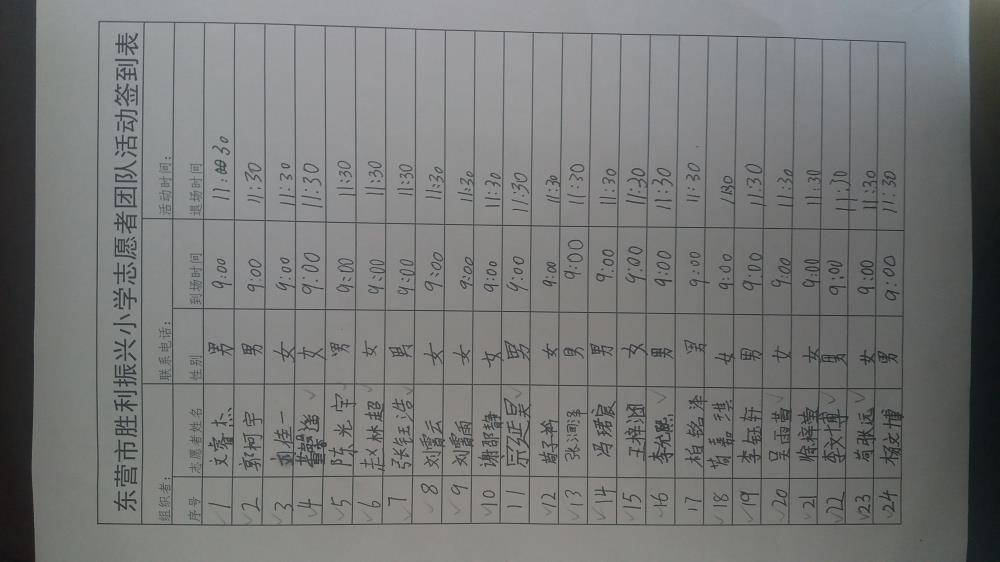 东营市胜利振兴小学志愿者团队活动签到表
组织者： 联系电话： 活动时间：
序号 志愿者姓名 性别 到场时间 退场时间
1 文睿杰 男 9:00 11:30
2 郭柯宇 男 9:00 11:30
3 刘佳一 女 9:00 11:30
4 女 9:00 11:30
5 陈光宇 男 9:00 11:30
6 赵林超 女 9:00 11:30
7 张钰浩 男 9:00 11:30
8 刘霄云 女 9:00 11:30
9 刘霄雨 女 9:00 11:30
10 谢邵静 女 9:00 11:30
11 宗延昊 男 9:00 11:30
12 女 9:00 11:30
13 张润泽 男 9:00 11:30
14 冯珺宸 男 9:00 11:30
15 女 9:00 11:30
16 李允熙 男 9:00 11:30
17 柏铭泽 男 9:00 11:30
18 女 9:00 1130
19 李钰轩 男 9:00 11:30
20 吴雨蕾 女 9:00 11:30
21 徐梓萱 女 9:00 11:30
22 李文博 男 9:00 11:30
23 苟张远 女 9:00 11:30
24 杨文博 男 9:00 11:30